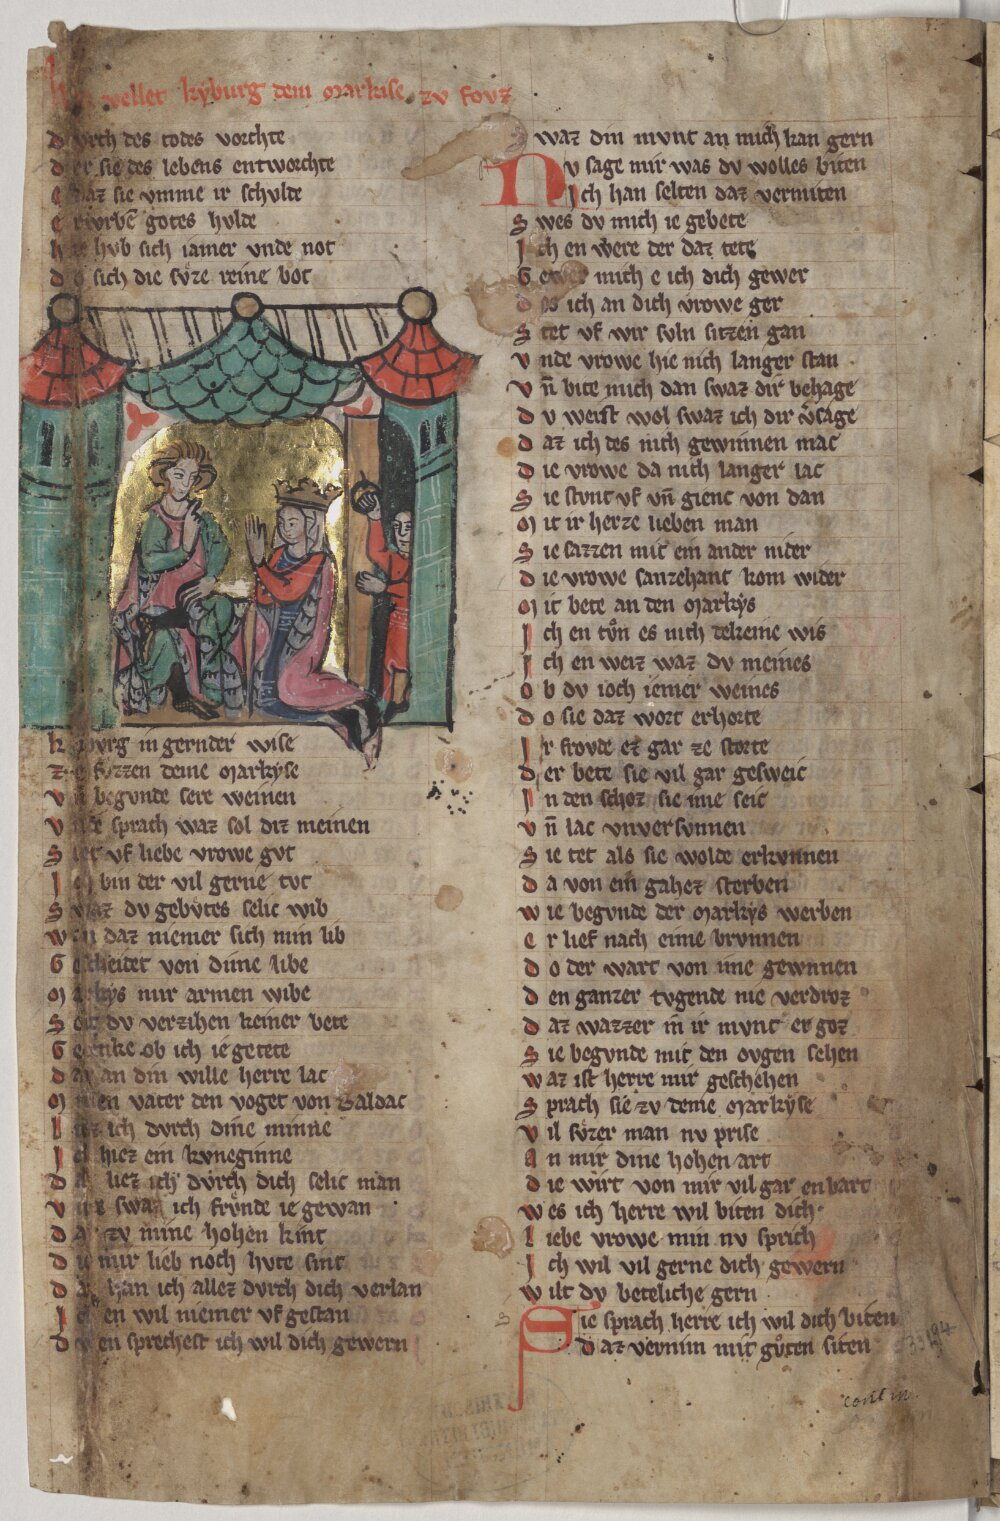 vellet kyburg dem Markise zv fovz
dvrch des todes vorchte
der sie des lebens entworchte
e daz sie vmme ir schvlde
erwrbē gotes hvlde
hie hvb sich iamer vnde not
do sich die svͤze reine bot
kyburg in gernder wise
zv fvzzen deme Markyse
vñ begvnde sere weinen
vnde sprach waz sol diz meinen
Stet vf liebe vrowe gvt
Ich bin der vil gerne tvt
Swaz dv gebvtes selic wib
wan daz niemer sich min lib
Gescheidet von dime libe
Markys mir armen wibe
Solt dv verzihen keiner bete
Gedenke ob ich ie getete
daz an din wille herre lac
Minen vater den voget von Baldac
liez ich dvrch dine minne
Ich hiez ein kvneginne
daz liez ich dvrch dich selic man
vnde swaz ich frvnde ie gewan
dar zv mine hohen kint
die mir lieb noch hvte sint
daz kan ich allez dvrch dich verlan
Ich en wil niemer vf gestan
dv en sprechest ich wil dich gewern
waz din mvnt an mich kan gern
Nv sage mir was dv wolles biten
Ich han selten daz vermiten
Swes dv mich ie gebete
Ich en were der daz tete
Gewer mich e ich dich gewer
des ich an dich vrowe ger
Stet vf wir svln sitzen gan
vnde vrowe hie nich langer stan
vñ bite mich dan swaz dir behage
dv weist wol swaz ich dir v̄sage
daz ich des nich gewinnen mac
die vrowe da nich langer lac
Sie stvnt vf vñ gienc von dan
Mit ir herze lieben man
Sie sazzen mit ein ander nider
die vrowe sanzehant kom wider
Mit bete an den Markys
Ich en tvͦn es nich dekeine wis
Ich en weiz waz dv meines
ob dv ioch iemer weines
do sie daz wort erhorte
Ir frovde ez gar ze storte
der bete sie vil gar gesweic
In den schoz sie ime seic
vñ lac vnversvnnen
Sie tet als sie wolde erkvnnen
da von ein gahez sterben
wie begvnde der Markys werben
er lief nach eime brvnnen
do der wart von ime gewnnen
den ganzer tvgende nie verdroz
daz wazzer in ir mvnt er goz
Sie begvnde mit den ovgen sehen
waz ist herre mir geschehen
Sprach sie zv deme Markyse
vil svͤzer man nv prise
an mir dine hohen art
die wirt von mir vil gar enbart
wes ich herre wil biten dich
liebe vrowe min nv sprich
Ich wil vil gerne dich gewern
wilt dv beteliche gern
Sie sprach herre ich wil dich biten
daz vernim mit gvͦten siten
33194